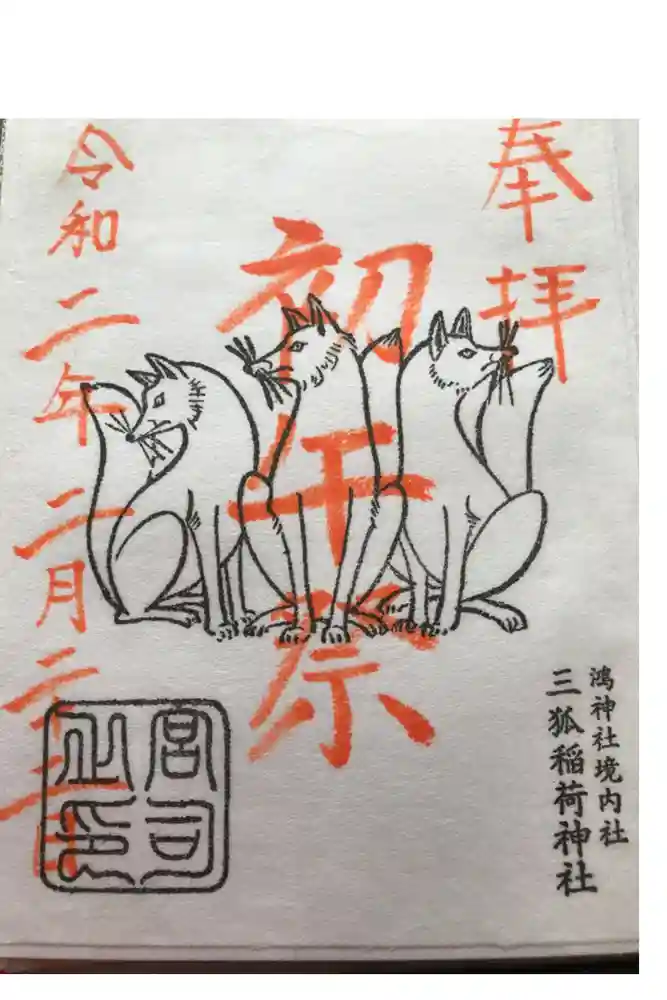 奉拝
初午祭
令和二年二月
鴻神社境内社
三狐稲荷神社
宮司
之印